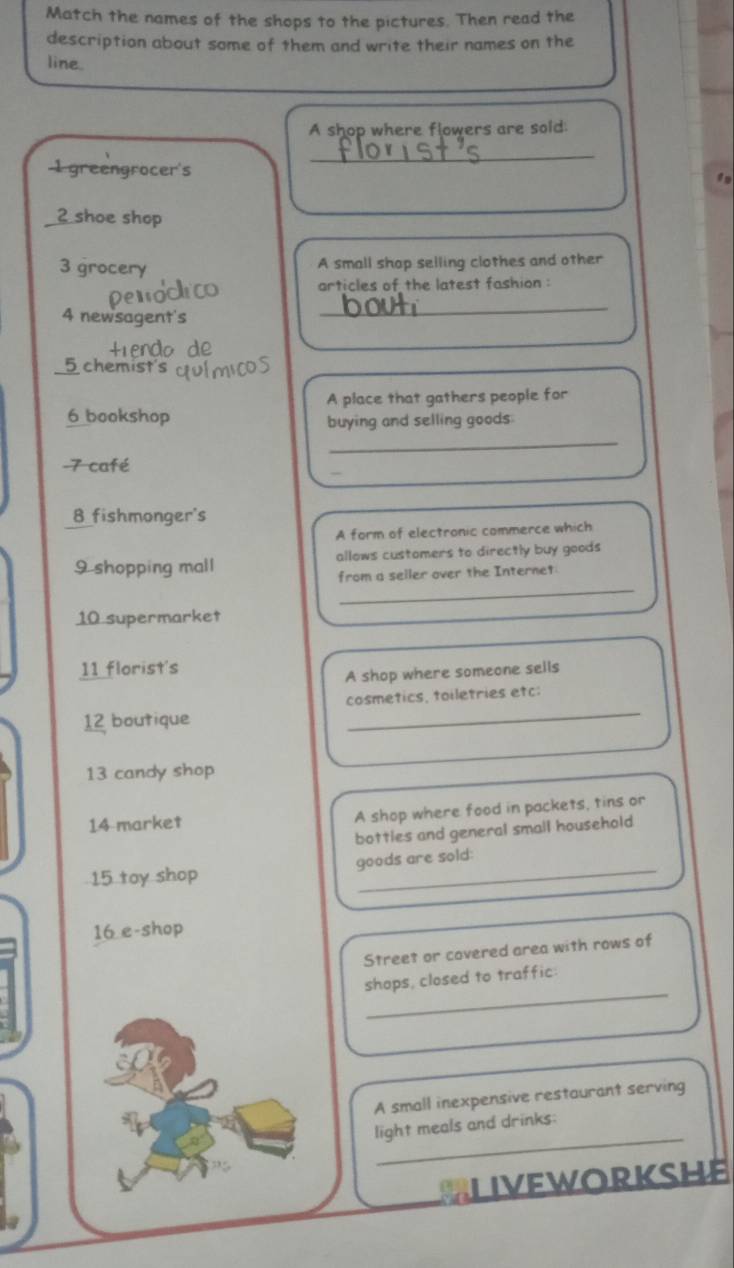 Match the names of the shops to the pictures. Then read the
description about some of them and write their names on the
line.
1 greengrocer's
2 shoe shop
3 grocery
periódico
4 newsagent's
tienda de
5 chemist's químicos
6 bookshop
7 café
8 fishmonger's
9 shopping mall
10 supermarket
11 florist's
12 boutique
13 candy shop
14 market
15 toy shop
16 e-shop
A shop where flowers are sold:
florist's
A small shop selling clothes and other
articles of the latest fashion :
bouti
A place that gathers people for
buying and selling goods:
A form of electronic commerce which
allows customers to directly buy goods
from a seller over the Internet:
A shop where someone sells
cosmetics, toiletries etc:
A shop where food in packets, tins or
bottles and general small household
goods are sold:
Street or covered area with rows of
shops, closed to traffic:
A small inexpensive restaurant serving
light meals and drinks:
LIVEWORKSHE